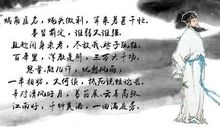 蜗角虚名，蝇头微利，算来着甚干忙。
事皆前定，谁弱又谁强。
且趁闲身未老，尽放我些子疏狂。
百年里，浑教是醉，三万六千场。
思量，能几许，忧愁风雨，
一半相妨，又何须，抵死说短论长。
幸对清风皓月，苔茵展，云幕高张。
江南好，千钟美酒，一曲满庭芳。